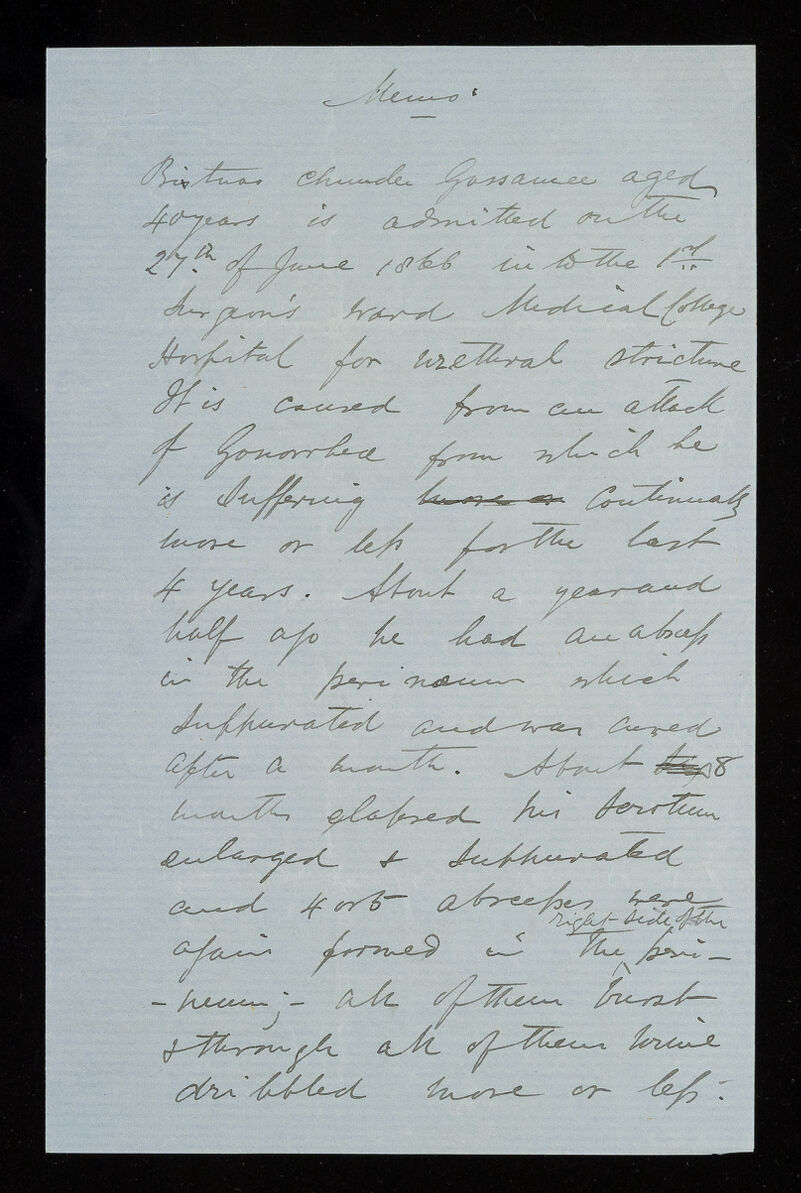 Memo:
Bistnoo chunder Gossamee aged
40 years is admitted on the
27th. of June 1866 in to the 1st
Surgeon's ward Medical College
Hospital for urethral stricture
It is caused from an attack
of Gonorrhea from which he
is Suffering more or Continually
more or less for the last
4 years. About a year and
half ago he had an abscess
in the perinaeum which
Suppurated and was cured
after a month. About 8
months elapsed his Scrotum
enlarged & Suppurated
and 4 or 5 abscesses were
right side of the
again formed in the peri-
-neum;- all of them burst
& through all of them urine
dribbled more or less.